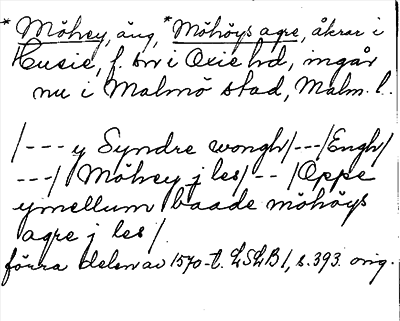 * Möhrey, äng, * Möhöys agre, åkrar i
Husie, f. sn i Oxie hd, ingår
nu i Malmö stad, Malm. l.
/--- y Syndre wongh/---/Engh/
---/ Möhrey j les/-- /Oppe
ymellum baade möhöys
agre j les/.
förra delen av 1570-t. LSLB 1, s. 393. orig.